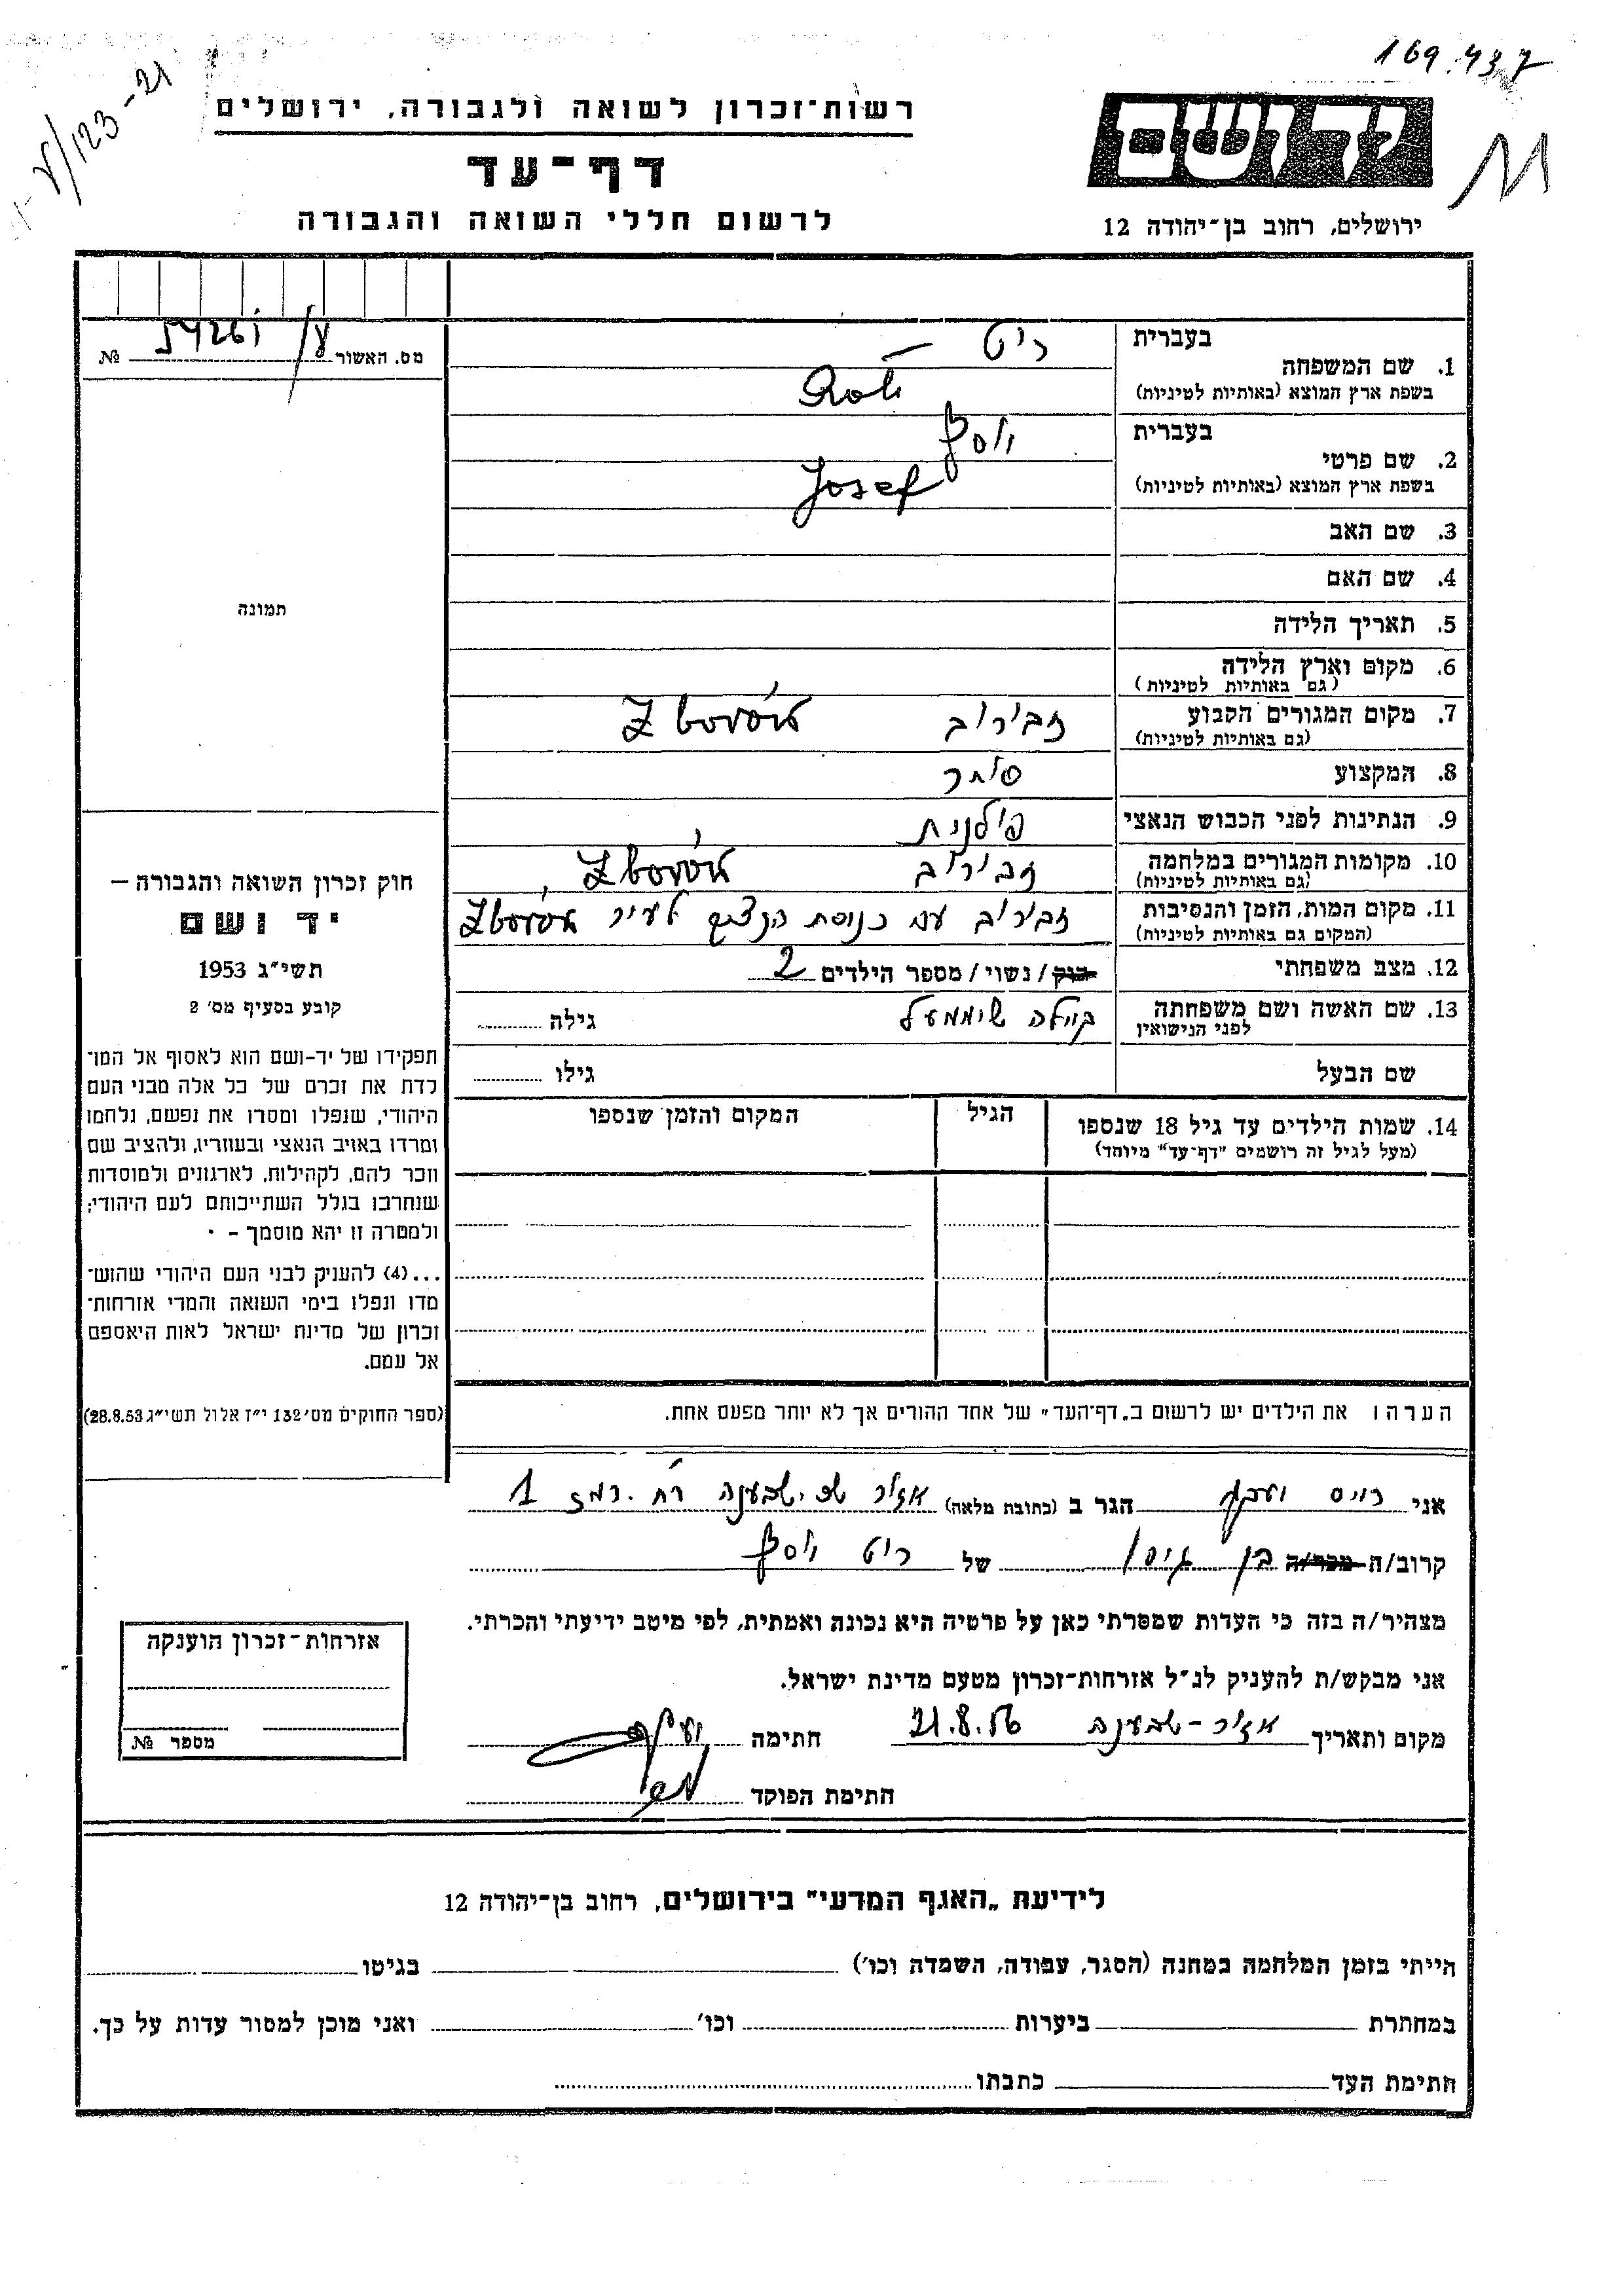 169.437
רשות־זכרון לשואה ולגבורה, ירושלים
דף־עד
לרשום חללי השואה והגבורה
יד ושם
ירושלים, רחוב בן־יהודה 12
מס. האשור №
1. שם המשפחה
בעברית
ריט
בשפת ארץ המוצא (באותיות לטיניות)
2. שם פרטי
בעברית
יוסף
בשפת ארץ המוצא (באותיות לטיניות) Josef
3. שם האב
4. שם האם
תמונה
5. תאריך הלידה
6. מקום וארץ הלידה
(גם באותיות לטיניות)
7. מקום המגורים הקבוע זבורוב Zborów
(גם באותיות לטיניות)
8. המקצוע סוחר
9. הנתינות לפני הכבוש הנאצי פולנית
10. מקומות המגורים במלחמה זבורוב Zborów
(גם באותיות לטיניות)
11. מקום המות, הזמן והנסיבות זבורוב עם כנוסת הנצים לעיר Zborów
(המקום גם באותיות לטיניות)
12. מצב משפחתי רווק / נשוי / מספר הילדים 2
13. שם האשה ושם משפחתה
לפני הנישואין
גילה
שם הבעל גילו
14. שמות הילדים עד גיל 18 שנספו הגיל המקום והזמן שנספו
(מעל לגיל זה רושמים "דף־עד" מיוחד)
חוק זכרון השואה והגבורה —
יד ושם
תשי"ג 1953
קובע בסעיף מס' 2
תפקידו של יד-ושם הוא לאסוף אל המו־
לדת את זכרם של כל אלה מבני העם
היהודי, שנפלו ומסרו את נפשם, נלחמו
ומרדו באויב הנאצי ובעוזריו, ולהציב שם
וזכר להם, לקהילות, לארגונים ולמוסדות
שנחרבו בגלל השתייכותם לעם היהודי;
ולמטרה זו יהא מוסמך –
...(4) להעניק לבני העם היהודי שהוש־
מדו ונפלו בימי השואה והמרי אזרחות־
זכרון של מדינת ישראל לאות היאספם
אל עמם.
(ספר החוקים מס' 132 י"ז אלול תשי"ג 28.8.53)
הערה: את הילדים יש לרשום ב„דף־העד" של אחד ההורים אך לא יותר מפעם אחת.
אני רייס יעקב הגר ב (כתובת מלאה) אזור שכ. שבענה רח. רמז 1
קרוב/ה מכר/ה בן גיסו של ריט יוסף
מצהיר/ה בזה כי העדות שמסרתי כאן על פרטיה היא נכונה ואמתית, לפי מיטב ידיעתי והכרתי.
אני מבקש/ת להעניק לנ"ל אזרחות־זכרון מטעם מדינת ישראל.
מקום ותאריך אזור - שבענה 21.8.56 חתימה
חתימת הפוקד
אזרחות־זכרון הוענקה
מספר №
לידיעת „האגף המדעי" בירושלים, רחוב בן־יהודה 12
הייתי בזמן המלחמה במחנה (הסגר, עבודה, השמדה וכו') בגיטו
במחתרת ביערות וכו' ואני מוכן למסור עדות על כך.
חתימת העד כתבתו